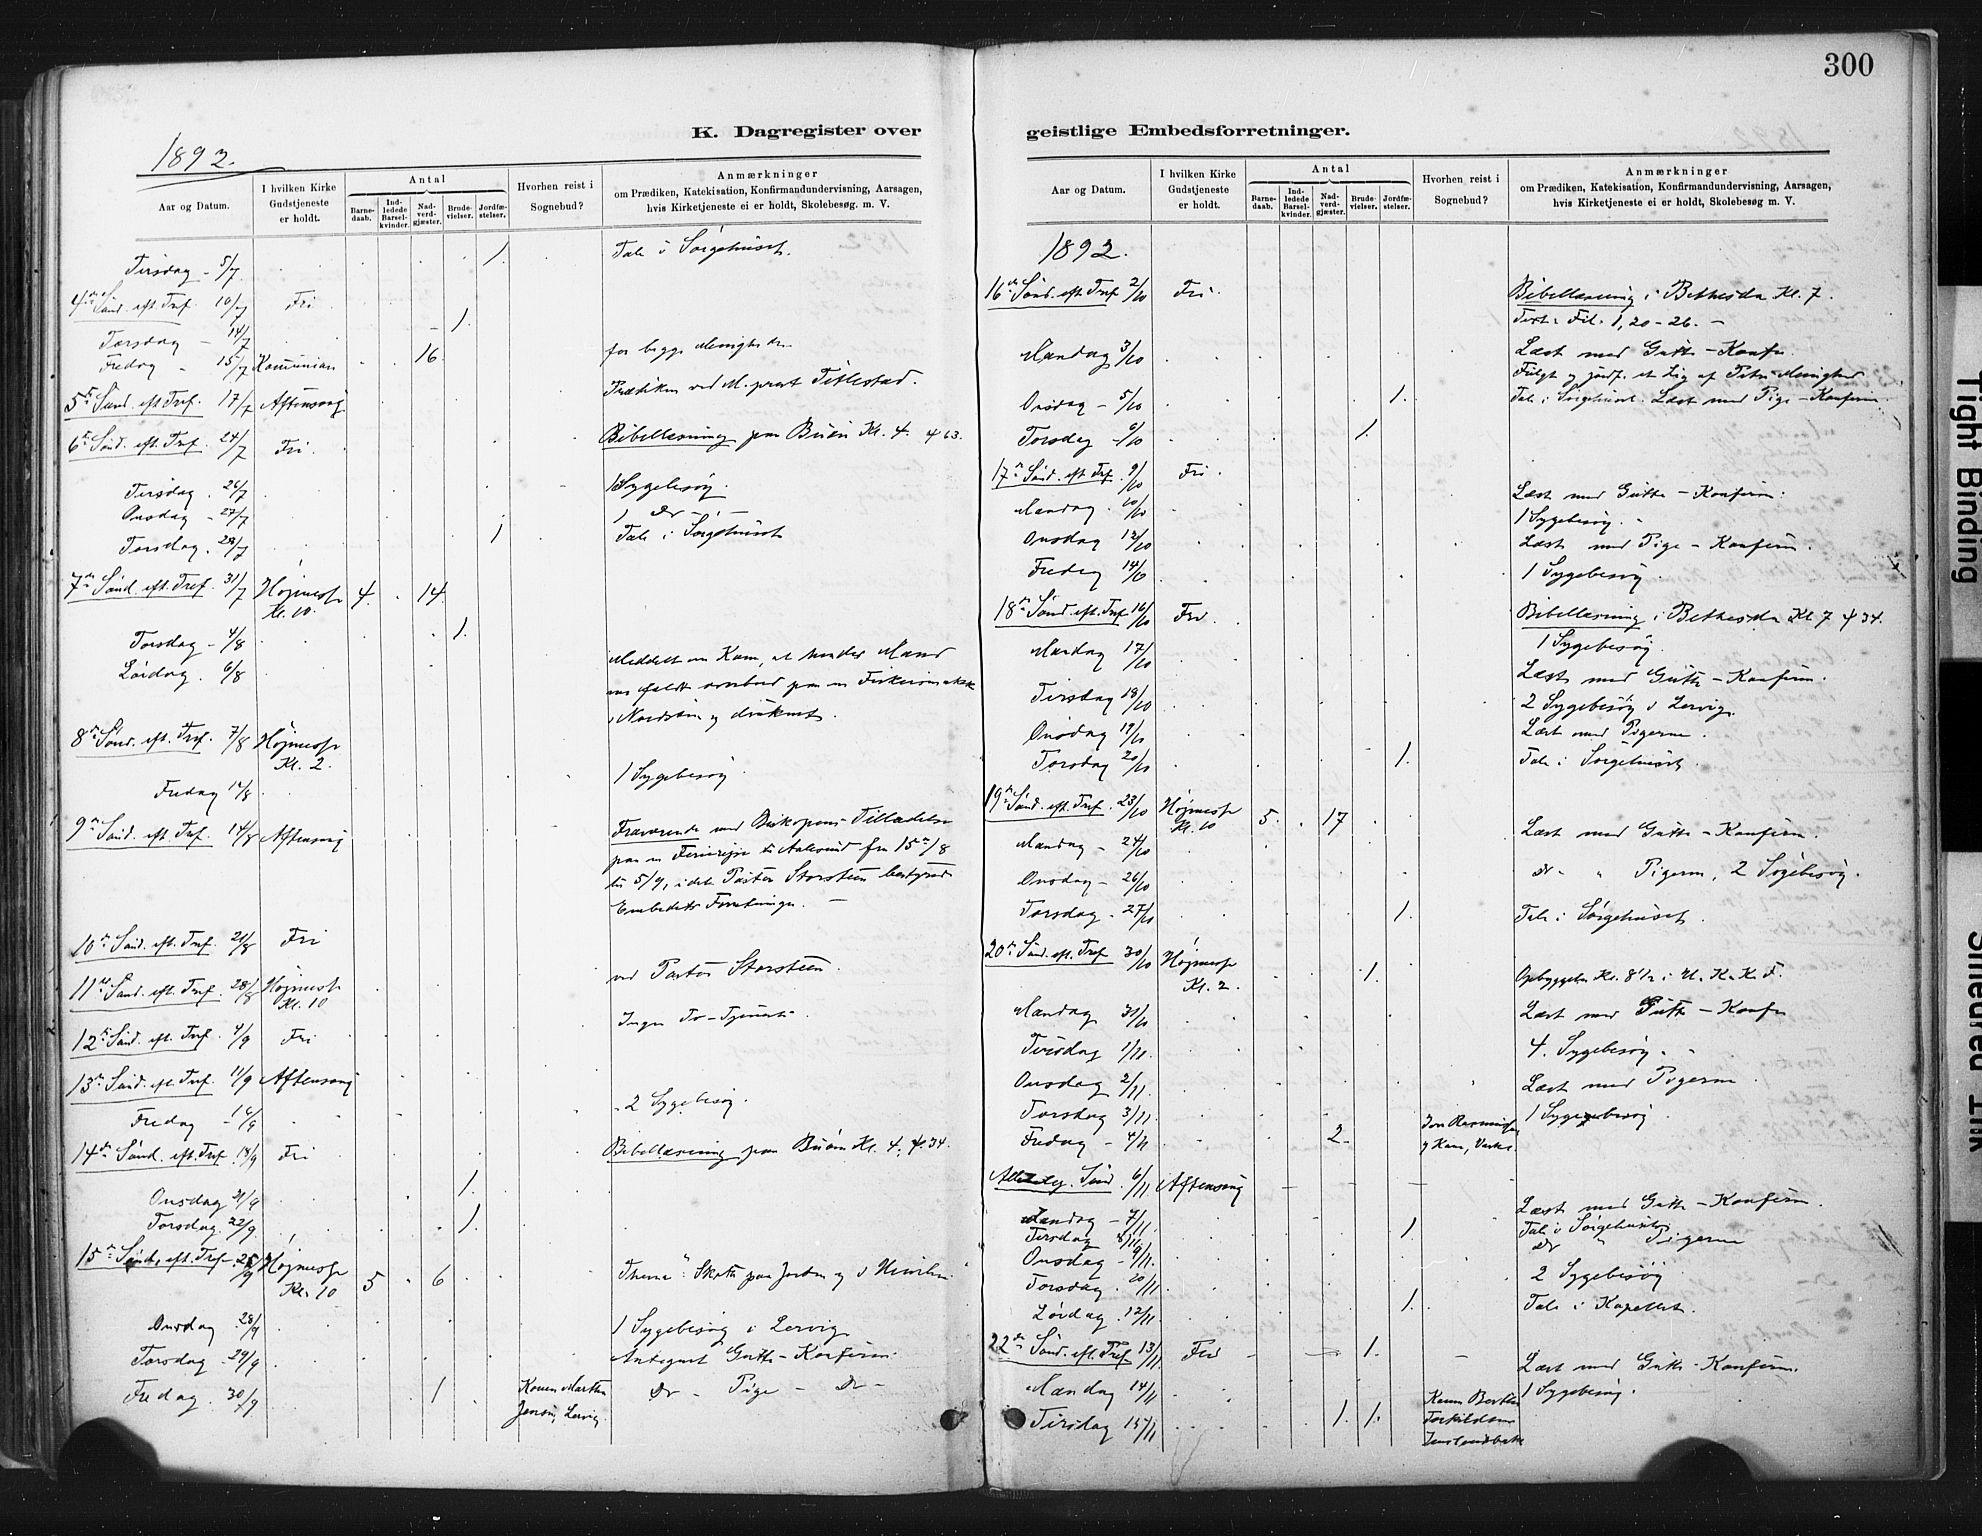 300
K. Dagregister over
1892.
Aar og Datum.
I hvilken Kirke Gudstjeneste er holdt.
Antal
Barnedaab.
Indledede Barselkvinder.
Nadverdgjæster.
Brudevielser.
Jordfæstelser.
Hvorhen reist i Sognebud?
Anmærkninger
om Prædiken, Katekisation, Konfirmandundervisning, Aarsagen,
hvis Kirketjeneste ei er holdt, Skolebesøg. m. V.
Tirsdag - 5/7 1. Tale i Sørgehuset.
4de Sønd. eft. Tref. 10/7 Fri
Torsdag - 14/7 1.
Fredag - 15/7 16 for begge
5te Sønd. eft. Tref. 17/7 Aftensang Prædiken ved Titlestad.
6te Sønd. eft. Tref. 24/7 Fri. Bibellæsning paa Buøi Kl. 4. ψ 63.
Tirsdag . 26/7 Sygebesøg.
Onsdag - 27/7 1 Do - -
Torsdag . 28/7 1 Tale i Sørgehuset
7de Sønd. eft. Tref. 31/7 Højmesse 4. 14
Kl. 10.
Torsdag - 4/8 1.
Lørdag . 6/8 Meddelt en Kone, at hendes Mand
var faldt overbord paa en
i Nordsøen og druknet.
8de Sønd. eft. Tref. 7/8 Højmesse
Kl. 2.
Fredag 12/8 1 Sygebesøg
9de Sønd. eft. Tref. 14/8 Aftensang Fraværende med Biskopens Tilladelse
paa en Feriereise til Aalesund fra 15de/8
til 5/9, idet Pastor Storsteen bestyrede
Embedets Forretninger. -
10de Sønd. eft. Tref. 21/8 Fri
11te Sønd. eft. Tref. 28/8 Højmesse ved Pastor Storsteen.
Kl. 10
12te Sønd. eft. Tref. 4/9 Fri Ingen
13de Sønd. eft. Tref. 11/9 Aftensang
Fredag - 16/9 2 Sygebesøg.
14de Sønd. eft. Tref. 18/9 Fri Bibellæsning paa Buøin Kl. 4. ψ. 34.
Onsdag 21/9 1.
Torsdag. 22/9 1.
15de Sønd. eft. Tref. 25/9 Højmesse 5 6 Thema: Skatte paa Jorden og i Himlen
Kl. 10
Onsdag 28/9 1 Sygebesøg i Lervig
Torsdag - 29/9 Antegnet Gutte-Konfirm.
Fredag . 30/9 1 Konen Marthe Do - Pige - Do -
Jensen, Lervig
geistlige Embedsforretninger.
Aar og Datum.
I hvilken Kirke Gudstjeneste er holdt.
Antal
Barnedaab.
Indledede Barselkvinder.
Nadverdgjæster.
Brudevielser.
Jordfæstelser.
Hvorhen reist i Sognebud?
Anmærkninger
om Prædiken, Katekisation, Konfirmandundervisning, Aarsagen,
hvis Kirketjeneste ei er holdt, Skolebesøg m. V.
1892.
16de Sønd. eft. Tref 2/10 Fri. Bibellæsning i Bethesda Kl. 7.
Text: Fil. 1, 20-26. -
Mandag 3/10 Læst med Gutte-Konfir.
Fulgt og jordf. et Lig af Petri Menighed
Onsdag - 5/10 1. Tale i Sørgehuset. Læst med Pige-Konfirm.
Torsdag - 6/10 1.
17de Sønd. eft. Tref. 9/10 Fri.
Mandag. 10/10 Læst med Gutte-Konfirm.
Onsdag 12/10 1 Sygebesøg.
Fredag 14/10 Læst med Pige-Konfirm.
1 Sygebesøg
18de Sønd. eft. Tref 16/10 Fri. Bibellæsning i Bethesda Kl. 7 ψ 34.
Mandag 17/10 1 Sygebesøg.
Tirsdag 18/10 Læst med Gutte-Konfirm.
2 Sygebesøg i Lervig
Onsdag 19/10 Læst med Pigerne.
Torsdag 20/10 1. Tale i Sørgehuset.
19de Sønd. eft. Tref. 23/10 Højmesse 5. 17
Kl. 10
Mandag - 24/10 Læst med Gutte-Konfirm.
Onsdag - 26/10 do - " Pigerne, 2 Sygebesøg.
Torsdag . 27/10 1. Tale i Sørgehuset.
20de Sønd. eft. Tref 30/10 Højmesse 1. Opbyggelse Kl. 8 1/2 i U. K. K. F.
Kl. 2.
Mandag 31/10 Læst med Gutte-Konfir
Tirsdag 1/11. 4. Sygebesøg.
Onsdag 2/11 Læst med Pigerne
Torsdag 3/11 1 Sygebesøg
Fredag - 4/11 2
Sønd. 6/11 Aftensang
Mandag - 7/11 1 Læst med Gutte-Konfirm
Tirsdag 8/11 Tale i Sørgehuset
Onsdag - 9/11. Do " Pigerne
Torsdag . 10/11 2 Sygebesøg
Lørdag . 12/11 1. Tale i Kapellet.
22de Sønd. eft. Tref 13/11 Fri 1.
Mandag 14/11 Læst med Gutte-Konfirm.
Tirsdag 15/11 1. 1. 1 Sygebesøg.
Tight Binding